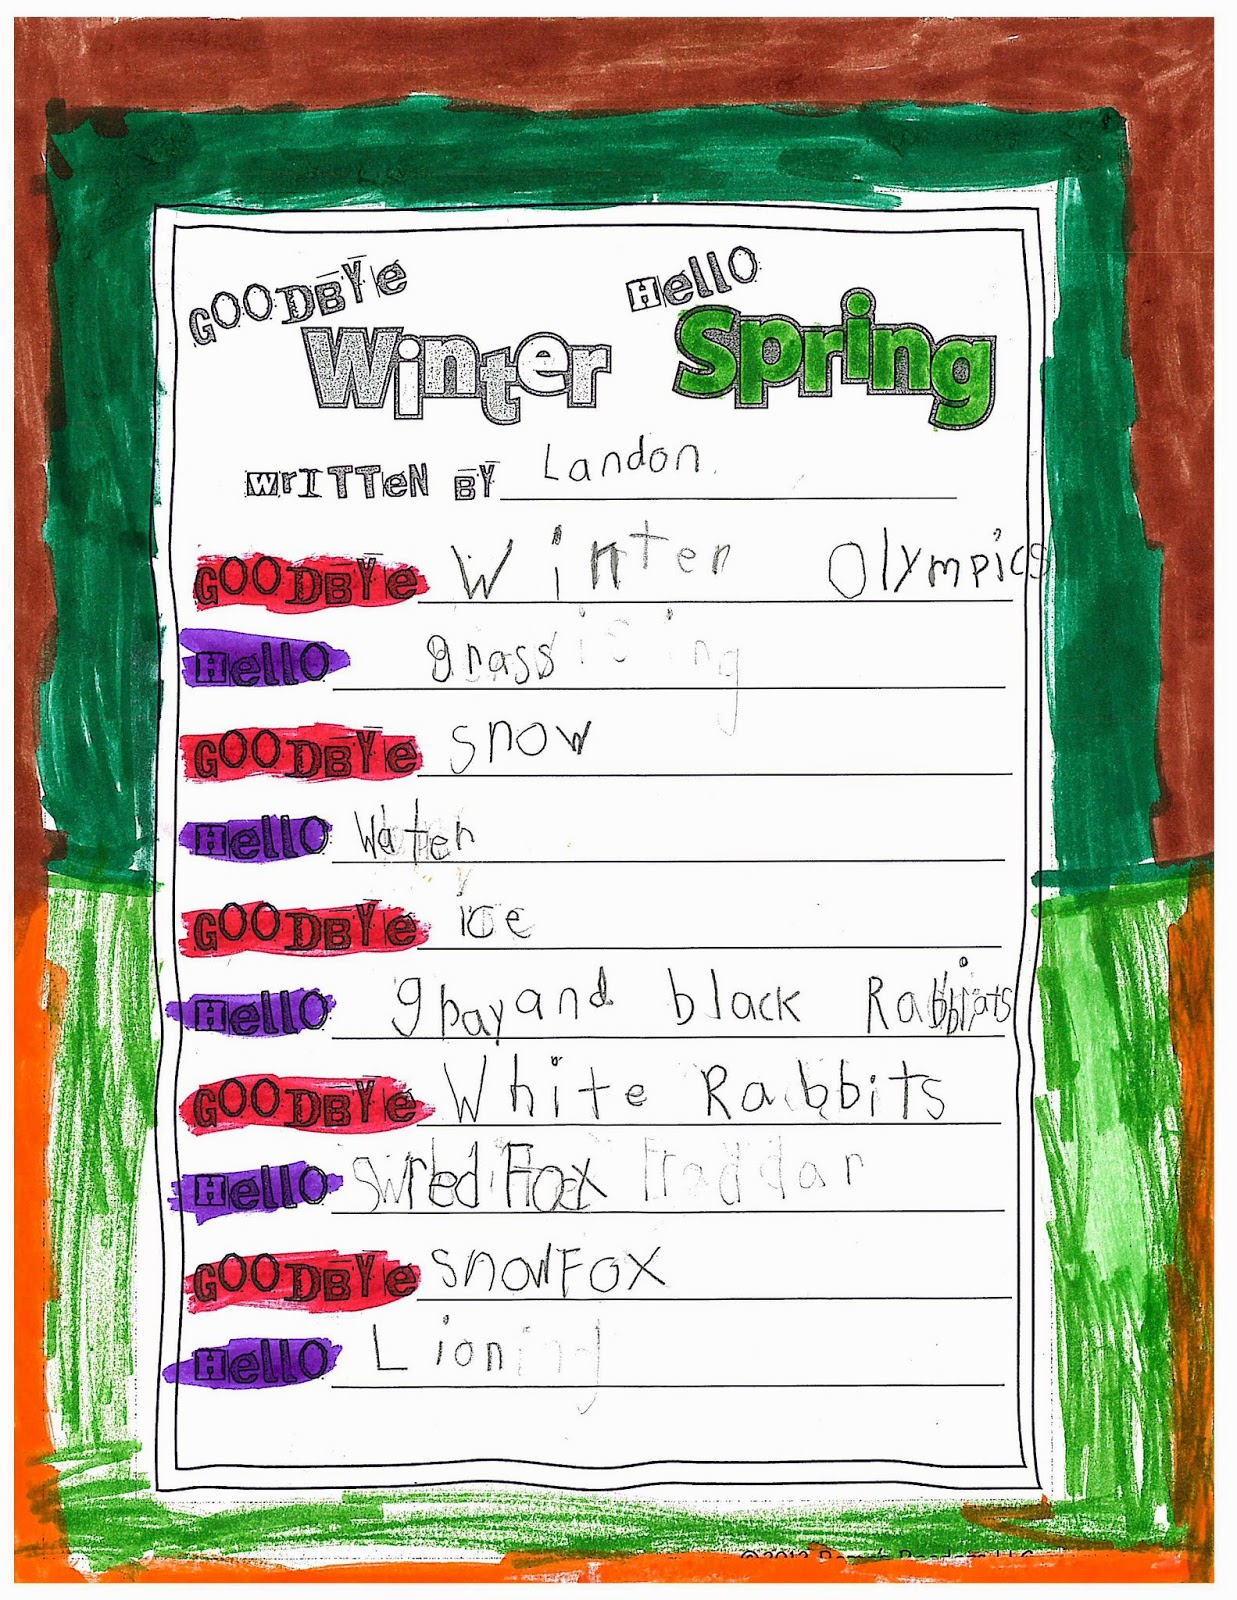 GOODBYE Hello
Winter Spring
WrITTeN BY Landon
GOODBYe Winter Olympics
Hello grass
GOODBYe snow
Hello Water
GOODBYe ice
Hello gray and black Rabbits
GOODBYe White Rabbits
Hello red Fox
GOODBYe snowFox
Hello Lion